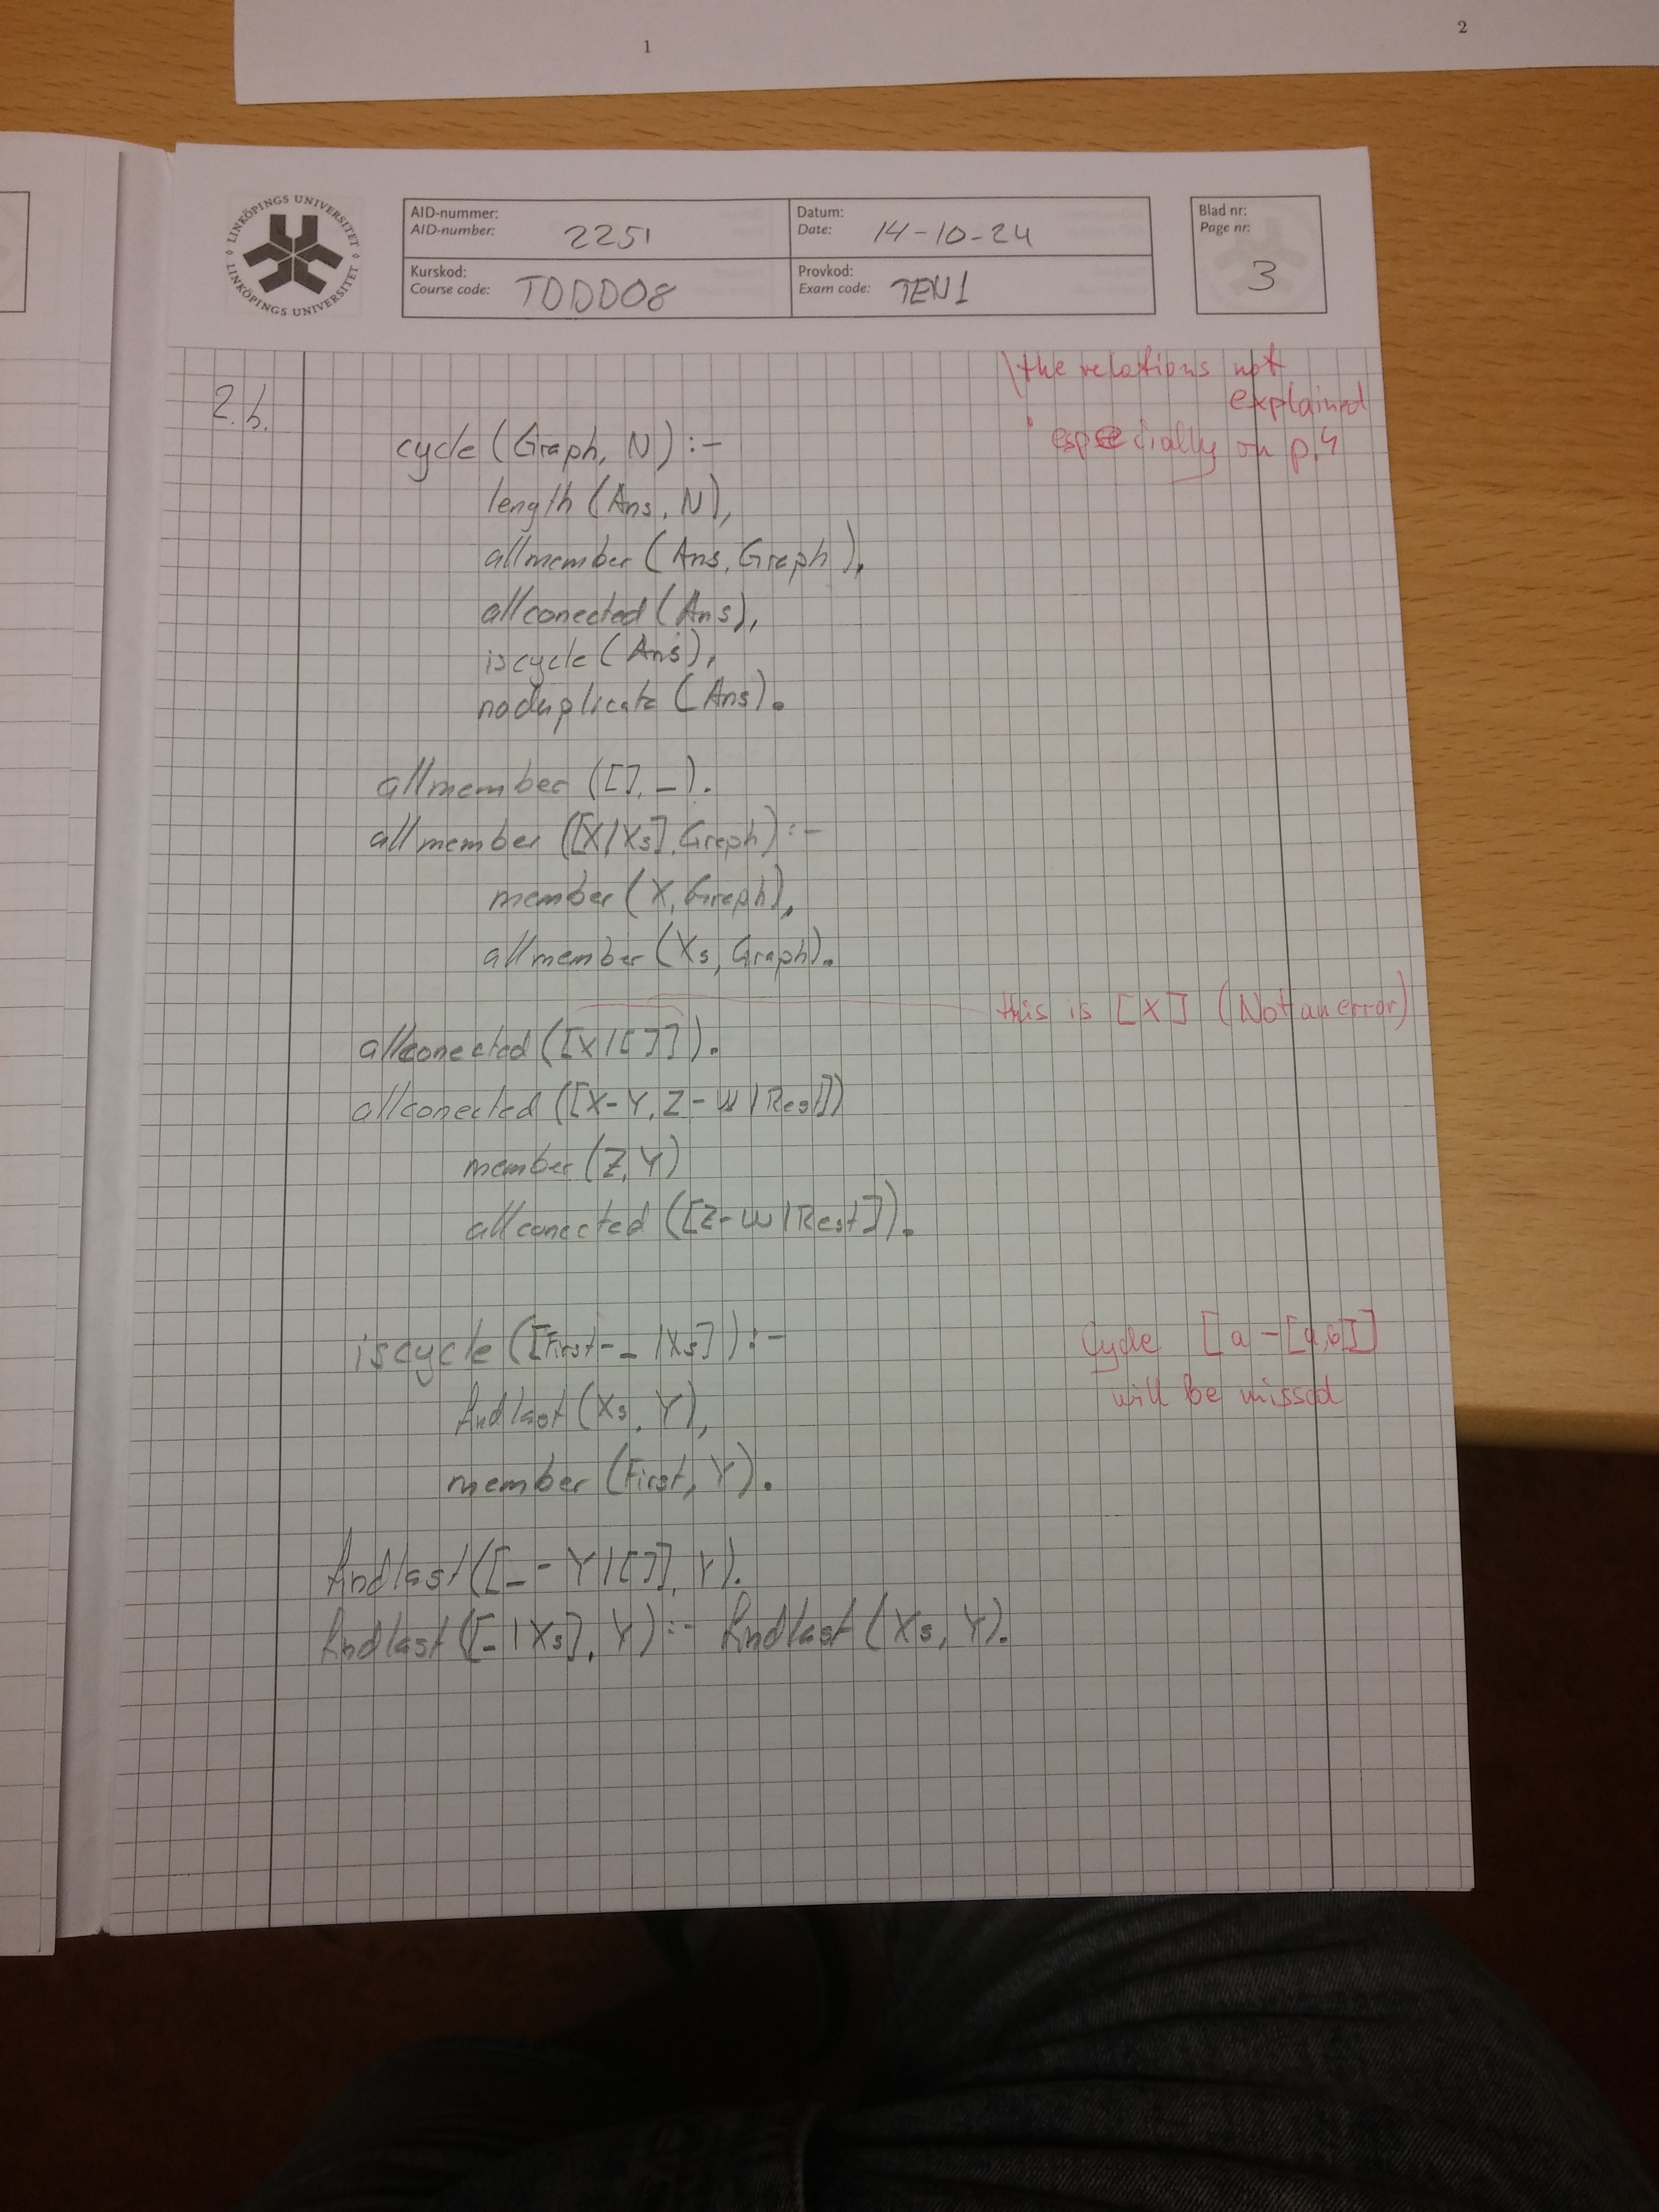 1
2
LINKÖPINGS UNIVERSITET
LINKÖPINGS UNIVERSITET
AID-nummer:
AID-number: 2251
Datum:
Date: 14-10-24
Blad nr:
Page nr:
3
Kurskod:
Course code: TDDD08
Provkod:
Exam code: TEN1
the relations not
explained
especially on p.4
2.b.
cycle (Graph, N) :-
length (Ans, N),
allmember (Ans, Graph),
allconected (Ans),
iscycle (Ans),
noduplicate (Ans).
allmember ([], _).
allmember ([X|Xs], Graph) :-
member (X, Graph),
allmember (Xs, Graph).
this is [X] (Not an error)
allconected ([X|[]]).
allconected ([X-Y, Z-W|Rest])
member (Z, Y)
allconected ([Z-W|Rest]).
iscycle ([First-_|Xs]) :-
Cycle [a-[a,b]]
will be missed
findlast (Xs, Y),
member (First, Y).
findlast ([_-Y|[]], Y).
findlast ([_|Xs], Y) :- findlast (Xs, Y).